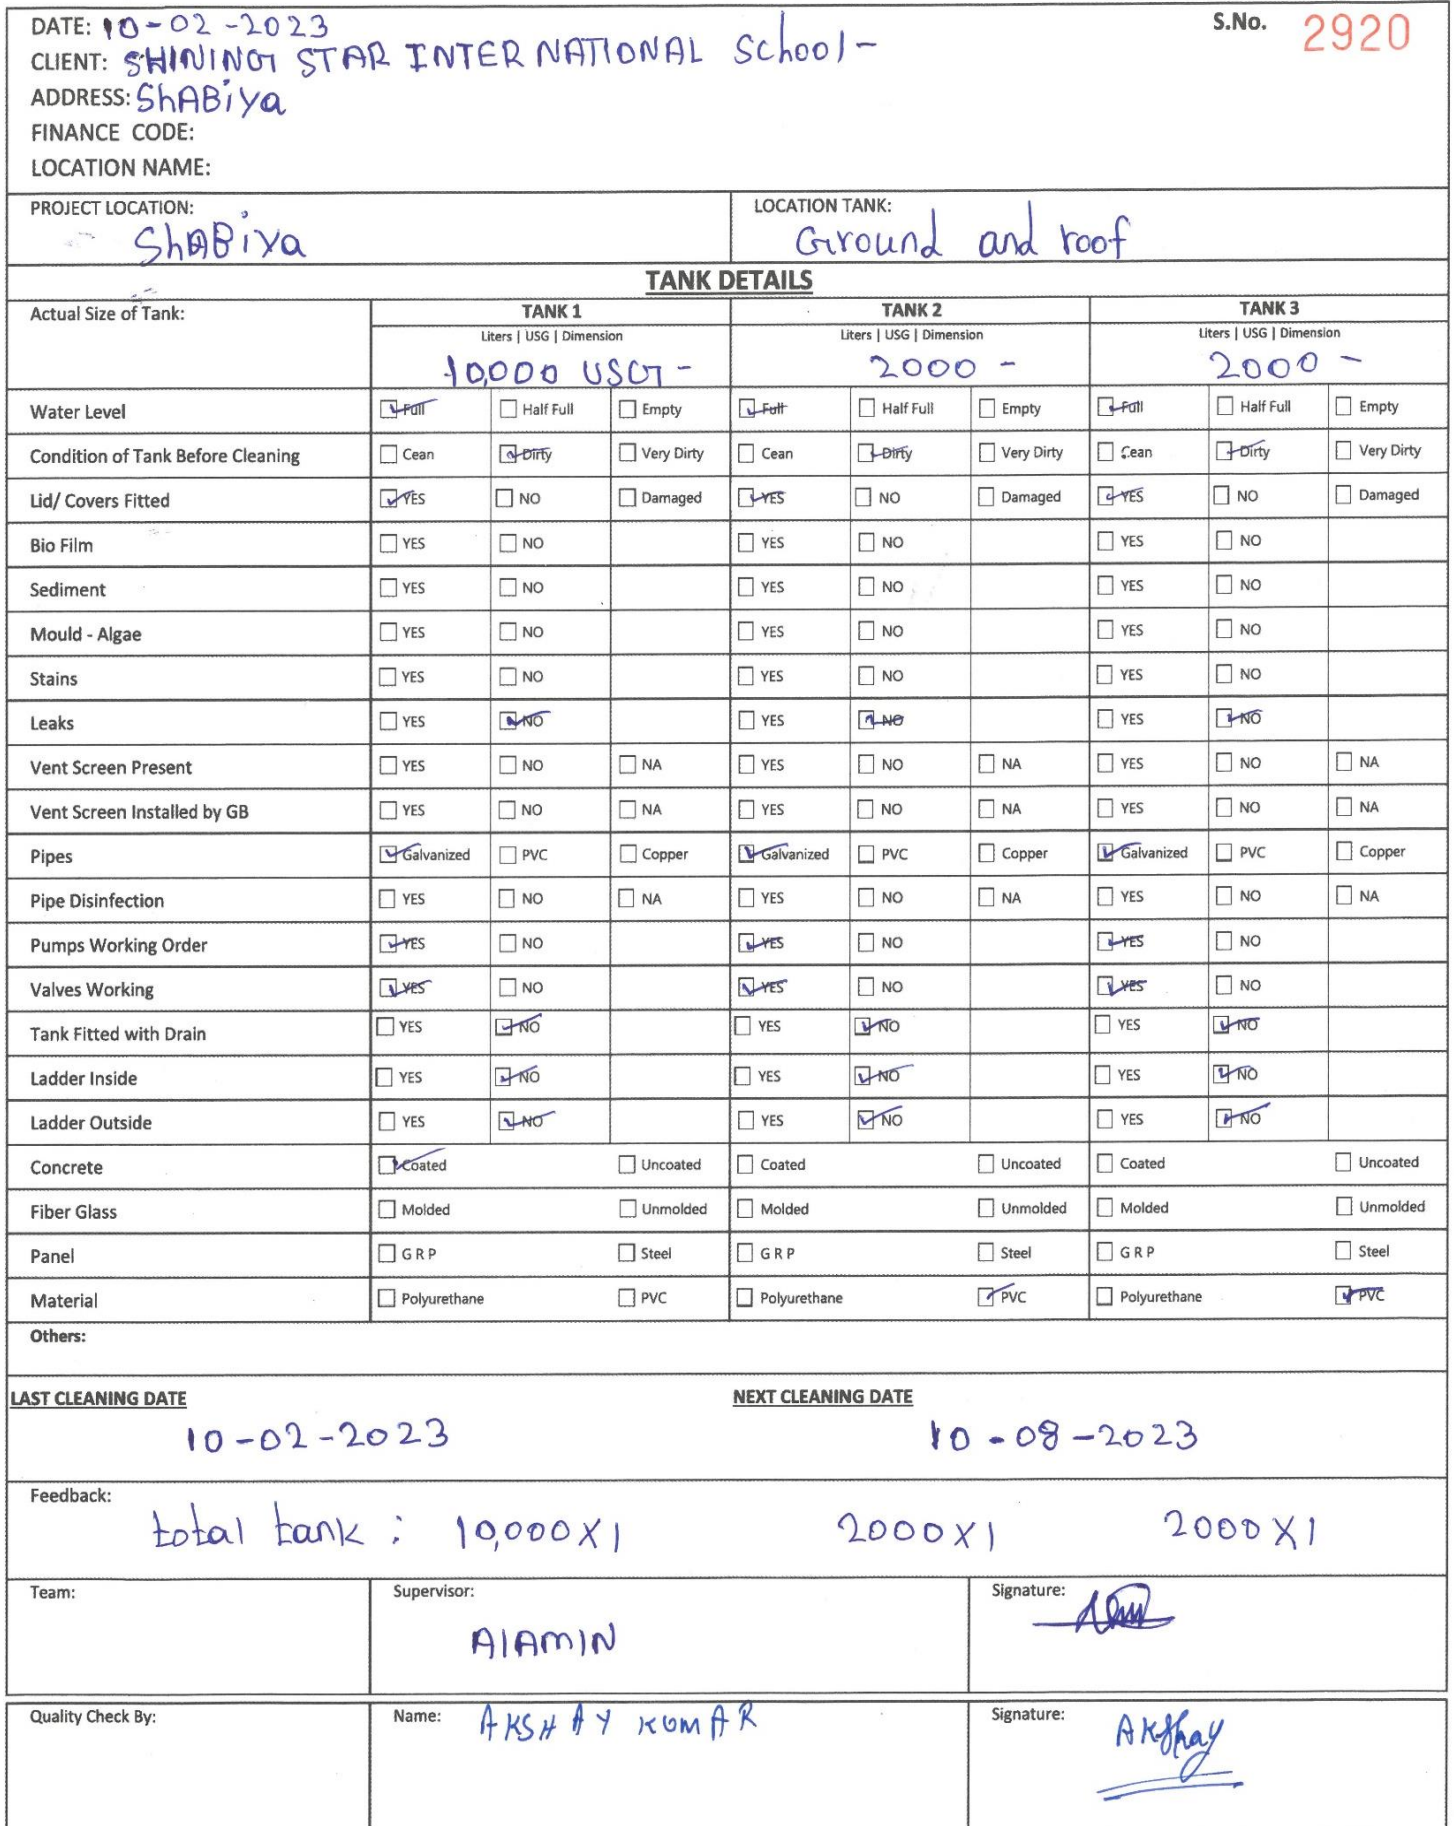 DATE: 10-02-2023 S.No. 2920
CLIENT: SHINING STAR INTERNATIONAL School-
ADDRESS: ShABiya
FINANCE CODE:
LOCATION NAME:
PROJECT LOCATION: LOCATION TANK:
ShABiya Ground and roof
TANK DETAILS
Actual Size of Tank: TANK 1 TANK 2 TANK 3
Liters | USG | Dimension Liters | USG | Dimension Liters | USG | Dimension
10,000 USG - 2000 - 2000 -
Water Level Full Half Full Empty Full Half Full Empty Full Half Full Empty
Condition of Tank Before Cleaning Cean Dirty Very Dirty Cean Dirty Very Dirty Cean Dirty Very Dirty
Lid/ Covers Fitted YES NO Damaged YES NO Damaged YES NO Damaged
Bio Film YES NO YES NO YES NO
Sediment YES NO YES NO YES NO
Mould - Algae YES NO YES NO YES NO
Stains YES NO YES NO YES NO
Leaks YES NO YES NO YES NO
Vent Screen Present YES NO NA YES NO NA YES NO NA
Vent Screen Installed by GB YES NO NA YES NO NA YES NO NA
Pipes Galvanized PVC Copper Galvanized PVC Copper Galvanized PVC Copper
Pipe Disinfection YES NO NA YES NO NA YES NO NA
Pumps Working Order YES NO YES NO YES NO
Valves Working YES NO YES NO YES NO
Tank Fitted with Drain YES NO YES NO YES NO
Ladder Inside YES NO YES NO YES NO
Ladder Outside YES NO YES NO YES NO
Concrete Coated Uncoated Coated Uncoated Coated Uncoated
Fiber Glass Molded Unmolded Molded Unmolded Molded Unmolded
Panel G R P Steel G R P Steel G R P Steel
Material Polyurethane PVC Polyurethane PVC Polyurethane PVC
Others:
LAST CLEANING DATE NEXT CLEANING DATE
10-02-2023 10-08-2023
Feedback:
total tank : 10,000X1 2000X1 2000X1
Team: Supervisor: Signature:
AlAMIN
Quality Check By: Name: AKSHAY KUMAR Signature:
Akshay